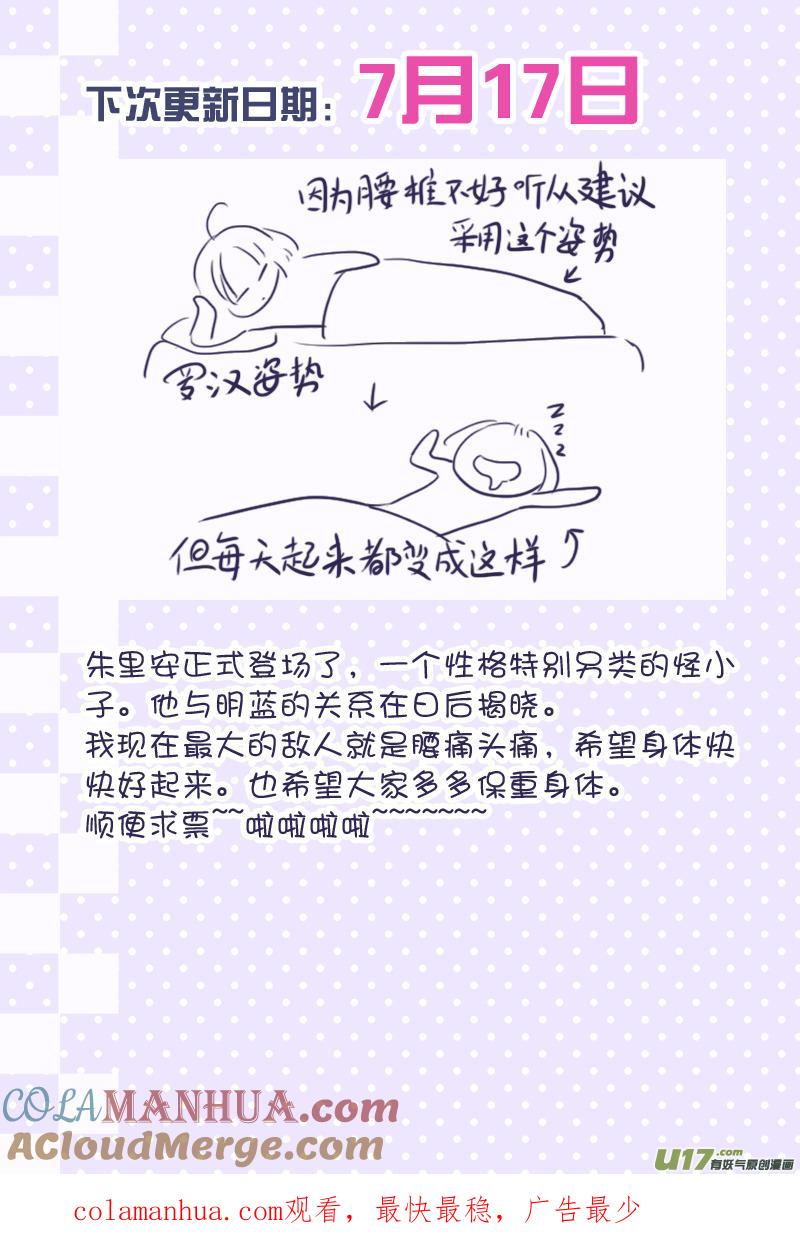 下次更新日期：7月17日
因为腰椎不好听从建议
采用这个姿势
罗汉姿势
z
z
z
但每天起来都变成这样
朱里安正式登场了，一个性格特别另类的怪小
子。他与明蓝的关系在日后揭晓。
我现在最大的敌人就是腰痛头痛，希望身体快
快好起来。也希望大家多多保重身体。
顺便求票~~啦啦啦啦~~~~~~~
COLAMANHUA.com
ACloudMerge.com
U17.com
有妖气原创漫画
colamanhua.com观看，最快最稳，广告最少